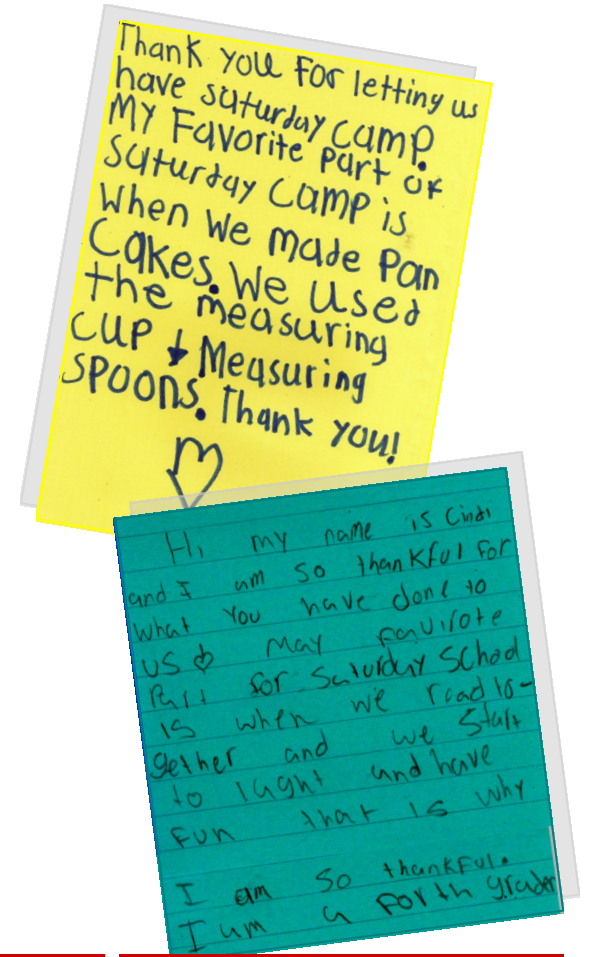 Thank you For letting us
have saturday camp.
My Favorite part of
saturday camp is
when we made pan
Cakes. We used
the measuring
cup + Measuring
spoons. Thank you!
Hi my name is Cindi
and I am so thankful for
what you have done to
us may favirote
Part for Saturday School
is when we read to-
gether and we start
to laght and have
fun that is why
I am so thankful.
I am a forth grader